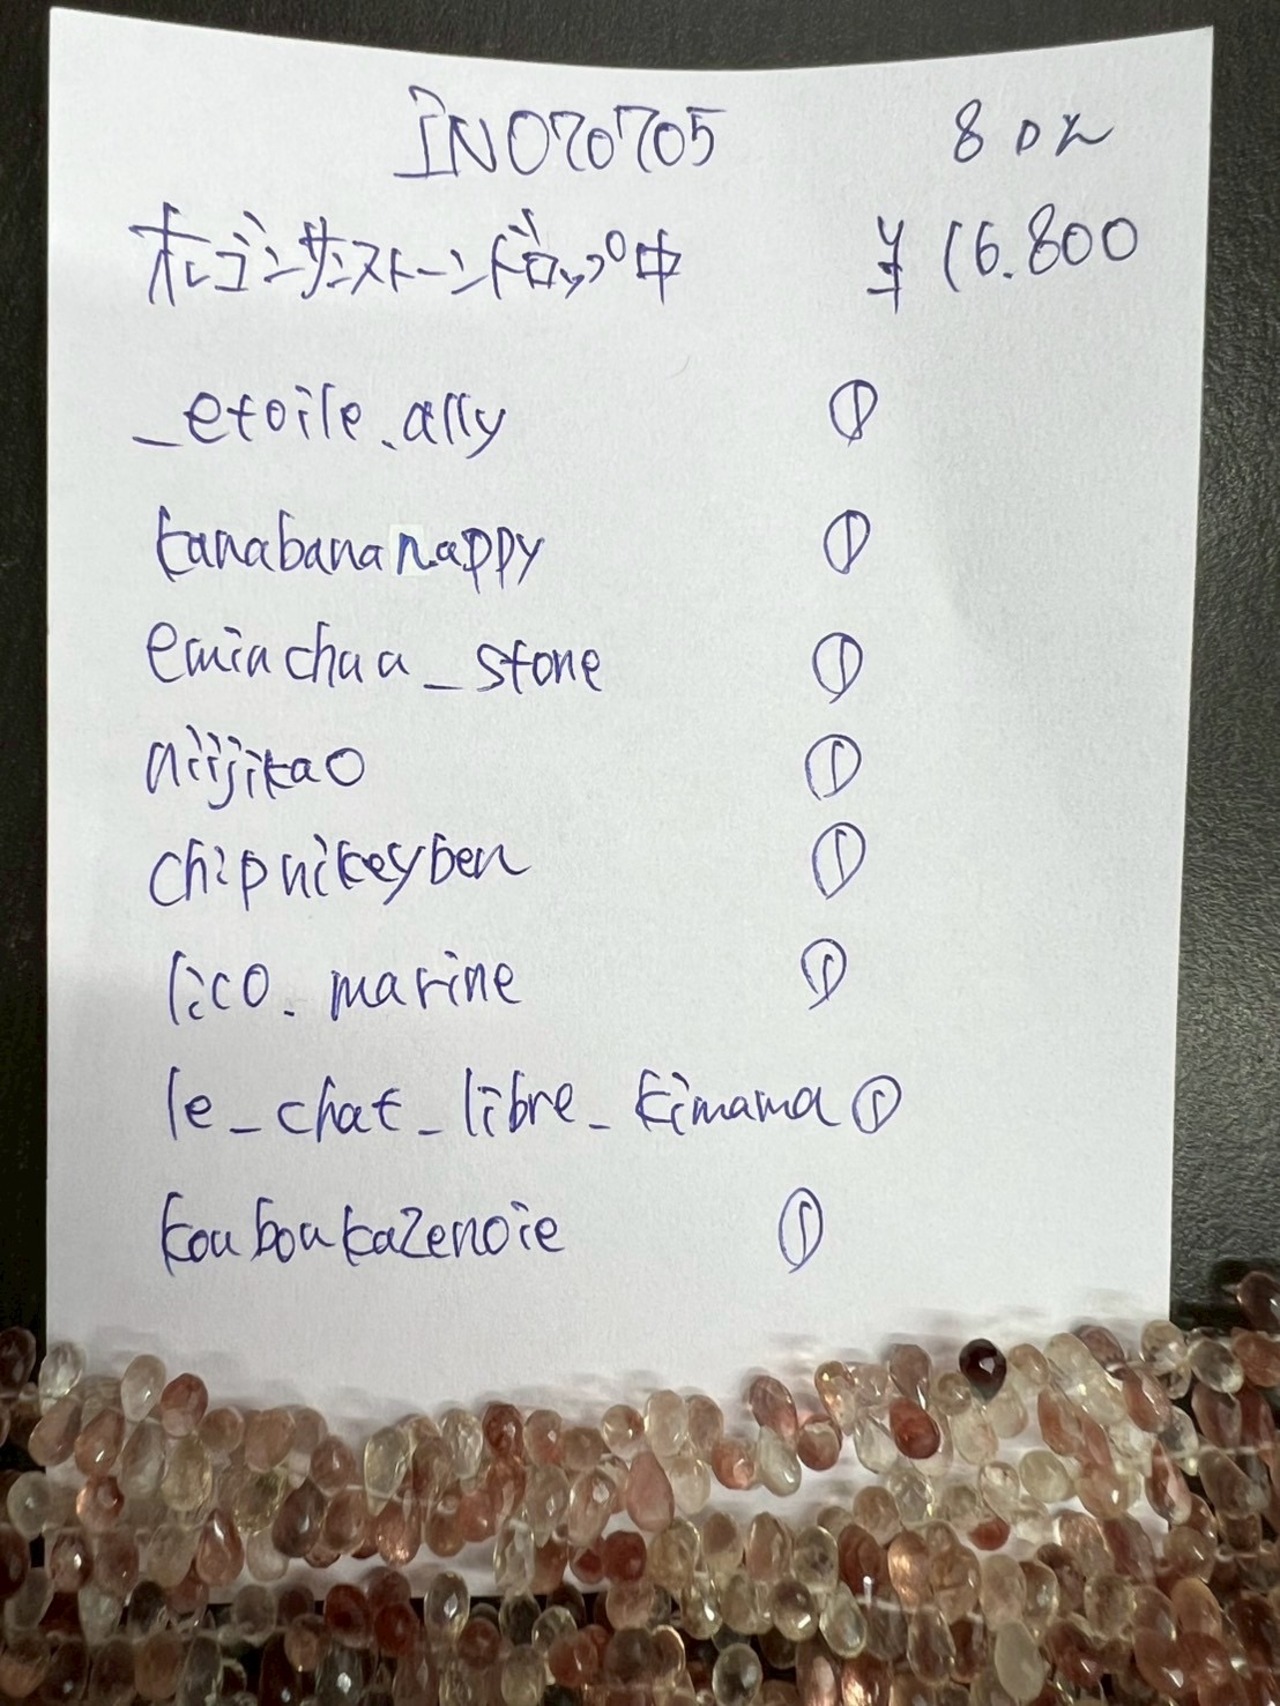 INO70705 8本
オレゴンサンストーンドロップ中 ¥16.800
_etoile.ally ①
kanabananappy ①
eminchaa_stone ①
niijikao ①
chipnikeyben ①
lico.marine ①
le_chat_libre_kimama ①
kouboukazenoie ①